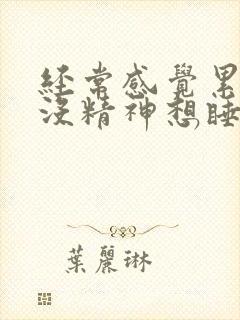 經常感覺累
沒精神想睡,
葉麗琳